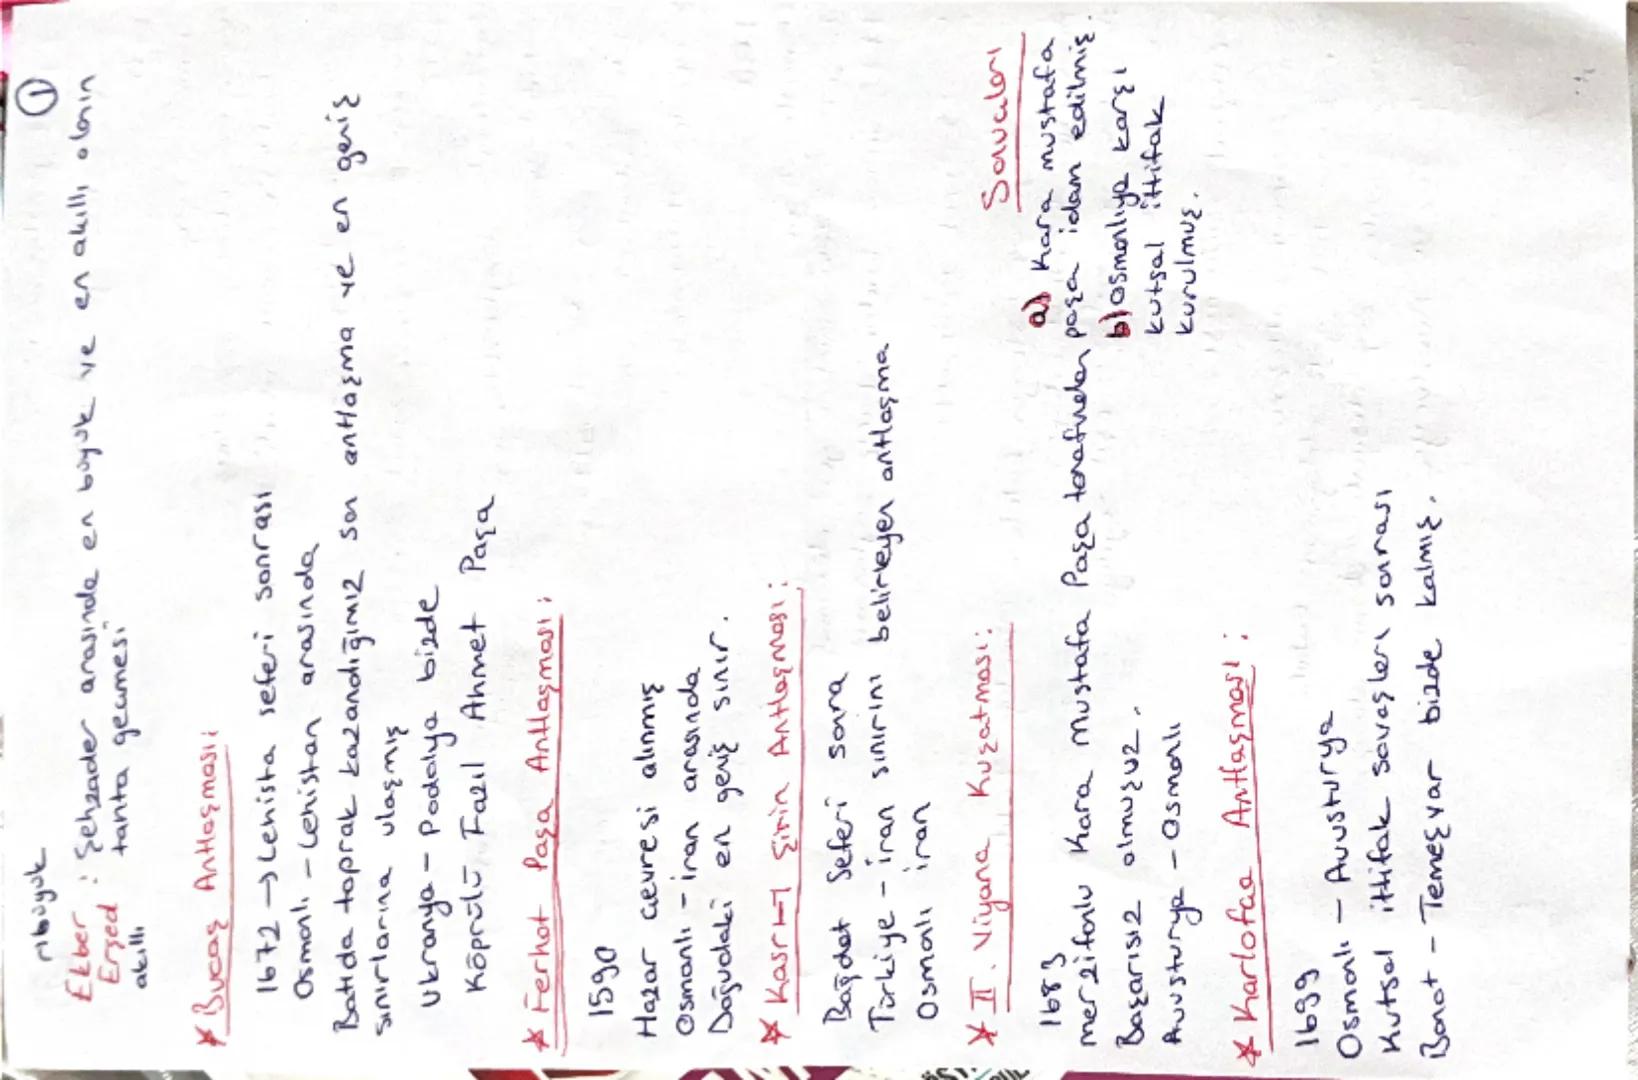 ①
nbüyük
Ekber : Şehzadeler arasında en büyük ve en akıllı olanın
Erşed tahta geçmesi
akıllı
* Bucaş Antlaşması:
1672 → Lehista seferi sonrası
Osmanlı - Lehistan arasında
Batıda toprak kazandığımız son antlaşma ve en geniş
sınırlarına ulaşmış
Ukranya - Podolya bizde
Köprülü Fazıl Ahmet Paşa
* Ferhat Paşa Antlaşması:
1590
Hazar çevresi alınmış
Osmanlı - iran arasında
Doğudaki en geniş sınır.
* Kasr-ı Şirin Antlaşması:
Bağdat Seferi sonra
Türkiye - iran sınırını belirleyen antlaşma
Osmanlı iran
* II. Viyana Kuşatması:
1683
merzifonlu Kara Mustafa Paşa tarafından
Başarısız olmuşuz.
Avusturya - Osmanlı
Sonuçları
a) Kara mustafa
paşa idam edilmiş.
b) Osmanlıya karşı
kutsal ittifak
kurulmuş.
* Karlofça Antlaşması:
1699
Osmanlı - Avusturya
Kutsal ittifak savaşları sonrası
Banat - Temeşvar bizde kalmış.